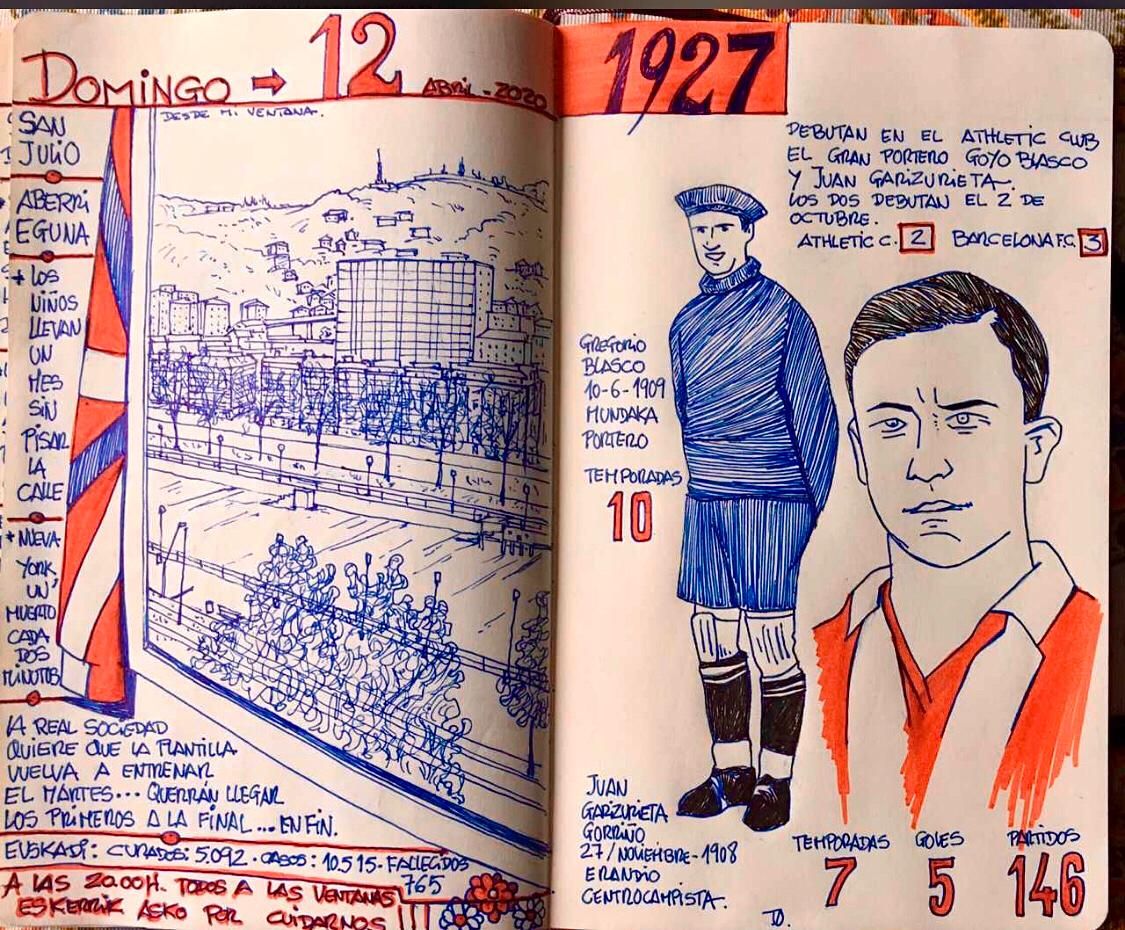 DOMINGO → 12 ABRIL - 2020
SAN
JULIO
ABERRI
EGUNA
* LOS
NIÑOS
LLEVAN
UN
MES
SIN
PISAR
LA
CALLE
* NUEVA
YORK
UN
MUERTO
CADA
DOS
MINUTOS
DESDE MI VENTANA.
LA REAL SOCIEDAD
QUIERE QUE LA PLANTILLA
VUELVA A ENTRENAR
EL MARTES... QUERRÁN LLEGAR
LOS PRIMEROS A LA FINAL... EN FIN.
EUSKADI: CURADOS: 5.092 · CASOS: 10.515 - FALLECIDOS
765
A LAS 20.00H. TODOS A LAS VENTANAS
ESKERRIK ASKO POR CUIDARNOS
1927
DEBUTAN EN EL ATHLETIC CLUB
EL GRAN PORTERO GOYO BLASCO
Y JUAN GARIZURIETA.
LOS DOS DEBUTAN EL 2 DE
OCTUBRE.
ATHLETIC C. 2 BARCELONA F.C. 3
GREGORIO
BLASCO
10-6-1909
MUNDAKA
PORTERO
TEMPORADAS
10
JUAN
GARIZURIETA
GORRIÑO
27/NOVIEMBRE-1908
ERANDIO
CENTROCAMPISTA.
TEMPORADAS GOLES PARTIDOS
7 5 146